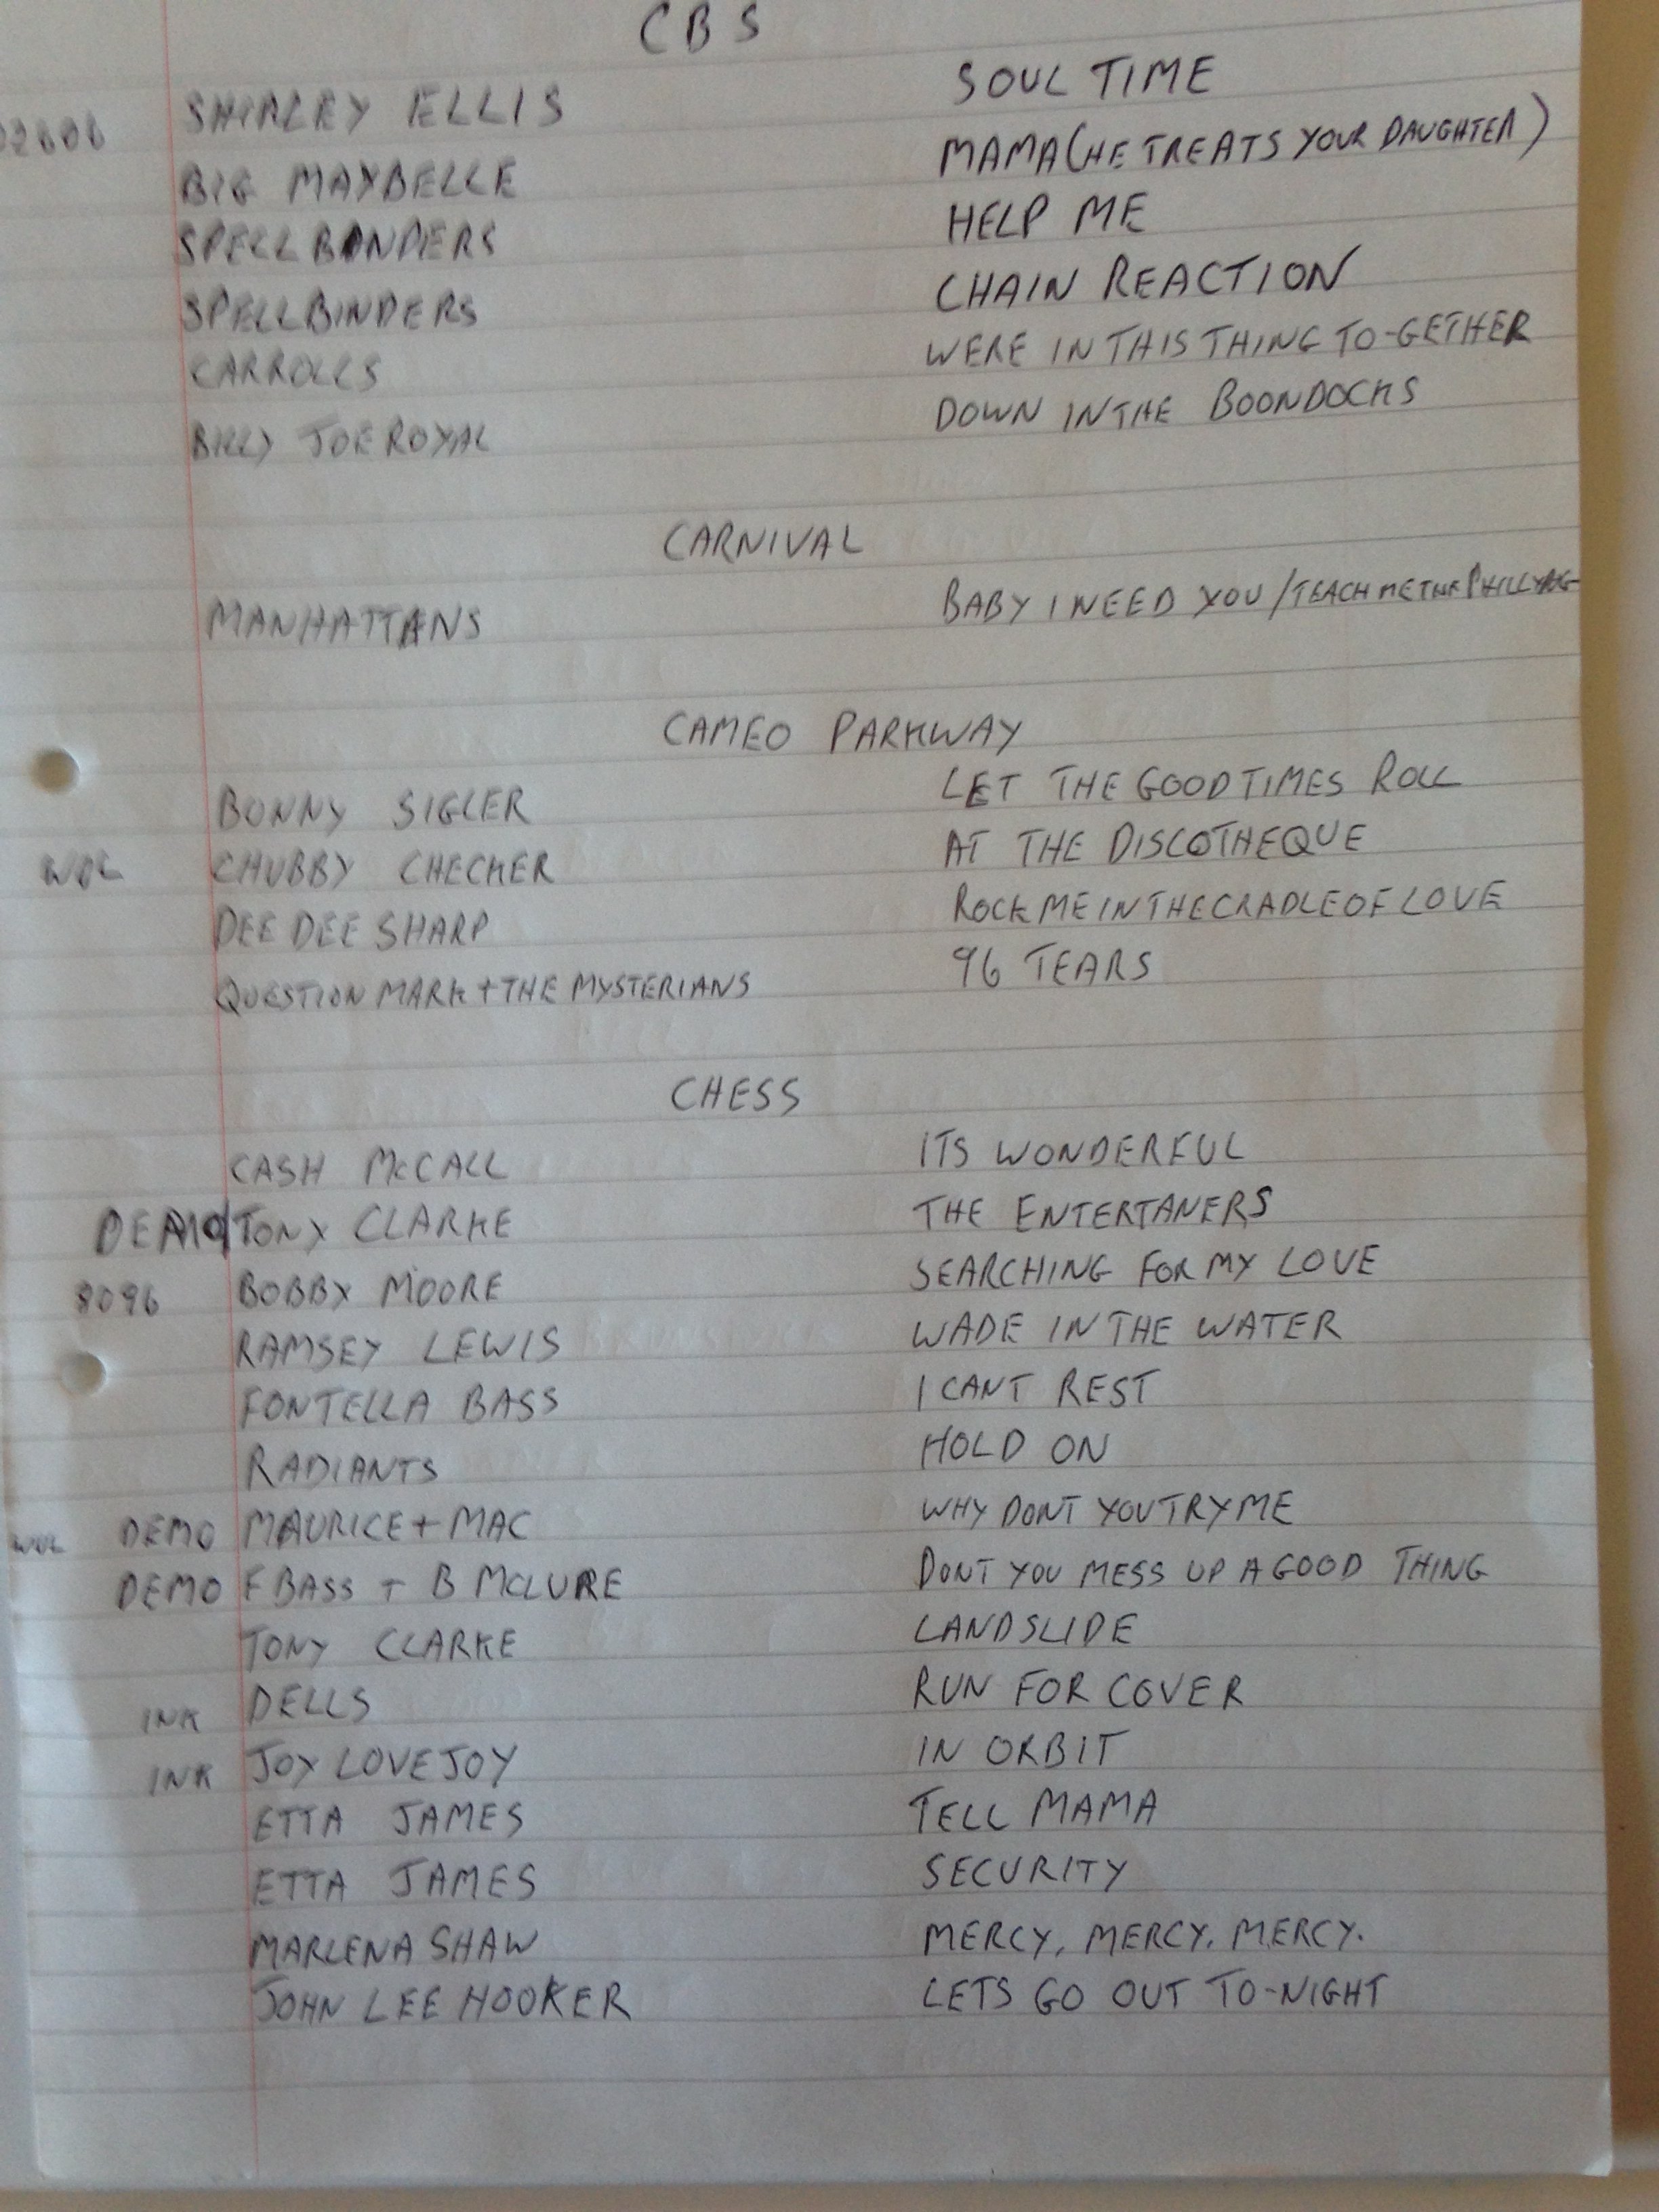 CBS
SHIRLEY ELLIS SOUL TIME
BIG MAYBELLE MAMA (HE TREATS YOUR DAUGHTER)
SPELLBINDERS HELP ME
SPELLBINDERS CHAIN REACTION
CARROLLS WERE IN THIS THING TO-GETHER
BILLY JOE ROYAL DOWN IN THE BOONDOCKS
CARNIVAL
MANHATTANS BABY I NEED YOU / TEACH ME THE PHILLY
CAMEO PARKWAY
BUNNY SIGLER LET THE GOOD TIMES ROLL
WOL CHUBBY CHECKER AT THE DISCOTHEQUE
DEE DEE SHARP ROCK ME IN THE CRADLE OF LOVE
QUESTION MARK + THE MYSTERIANS 96 TEARS
CHESS
CASH McCALL ITS WONDERFUL
DEMO TONY CLARKE THE ENTERTANERS
8096 BOBBY MOORE SEARCHING FOR MY LOVE
RAMSEY LEWIS WADE IN THE WATER
FONTELLA BASS I CANT REST
RADIANTS HOLD ON
WOL DEMO MAURICE + MAC WHY DONT YOU TRY ME
DEMO F BASS + B MCLURE DONT YOU MESS UP A GOOD THING
TONY CLARKE LANDSLIDE
INK DELLS RUN FOR COVER
INK JOY LOVEJOY IN ORBIT
ETTA JAMES TELL MAMA
ETTA JAMES SECURITY
MARLENA SHAW MERCY, MERCY, MERCY.
JOHN LEE HOOKER LETS GO OUT TO-NIGHT